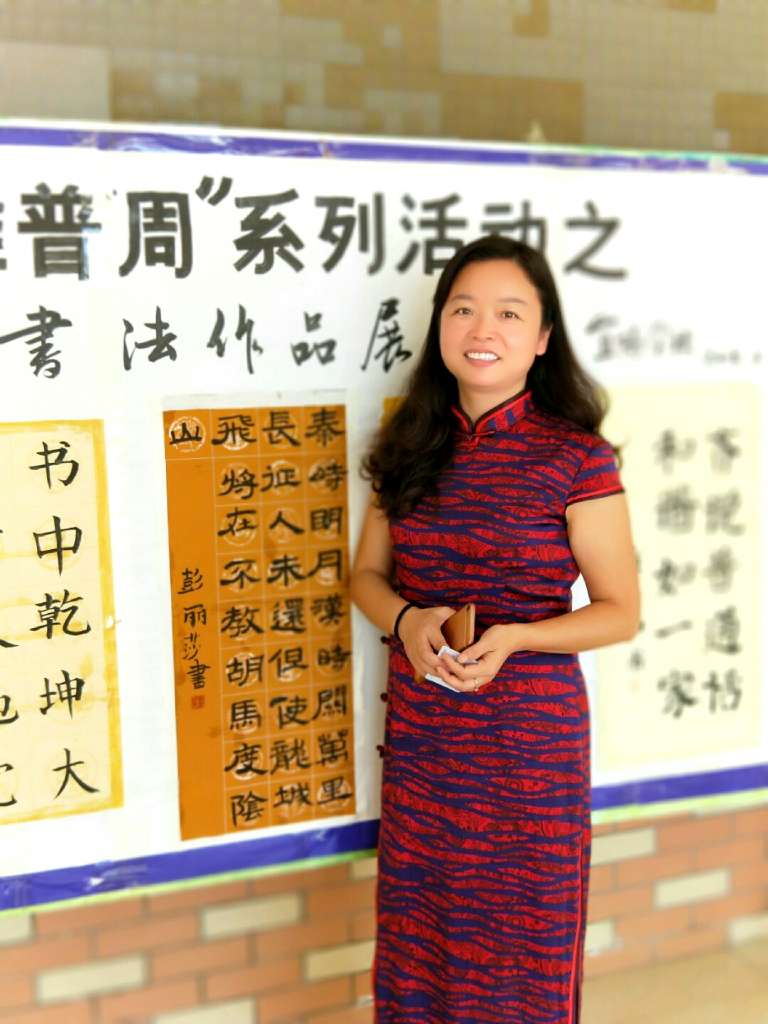 普周”系列活动之
書法作品展
书中乾坤大
秦時明月漢時關萬里
長征人未還但使龍城
飛將在不教胡馬度陰
山
彭丽莎書
齐说普通话
和谐如一家